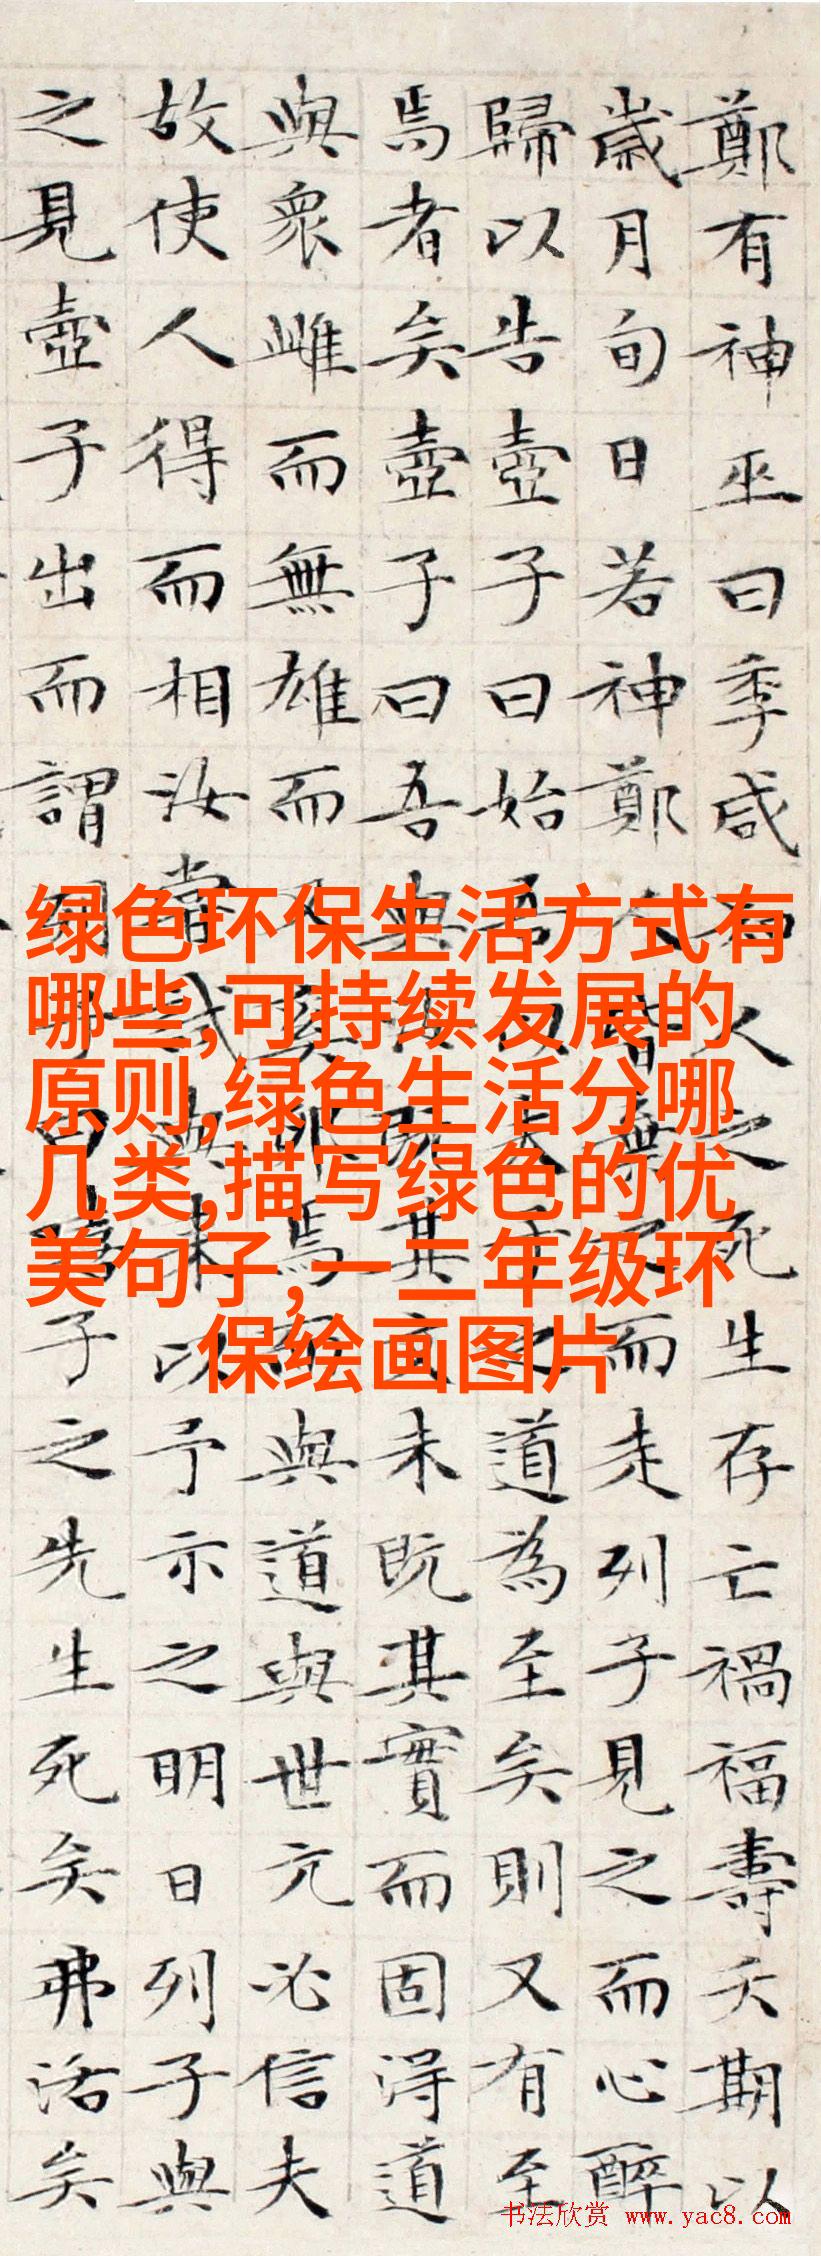 鄭有神巫曰季咸知人之死生存亡禍福壽夭期以
歲月旬日若神鄭人皆棄而走列子見之而心醉
歸以告壺子曰始吾以夫子之道為至矣則又有至
焉者矣壺子曰吾與汝既其文未既其實而固得道
與衆雌而無雄而又奚卵焉而與道與世亢必信夫
故使人得而相汝嘗試與來以予示之明日列子與
之見壺子出而謂列子曰嘻子之先生死矣弗活矣
绿色环保生活方式有
哪些,可持续发展的
原则,绿色生活分哪
几类,描写绿色的优
美句子,一二年级环
保绘画图片
书法欣赏 www.yac8.com